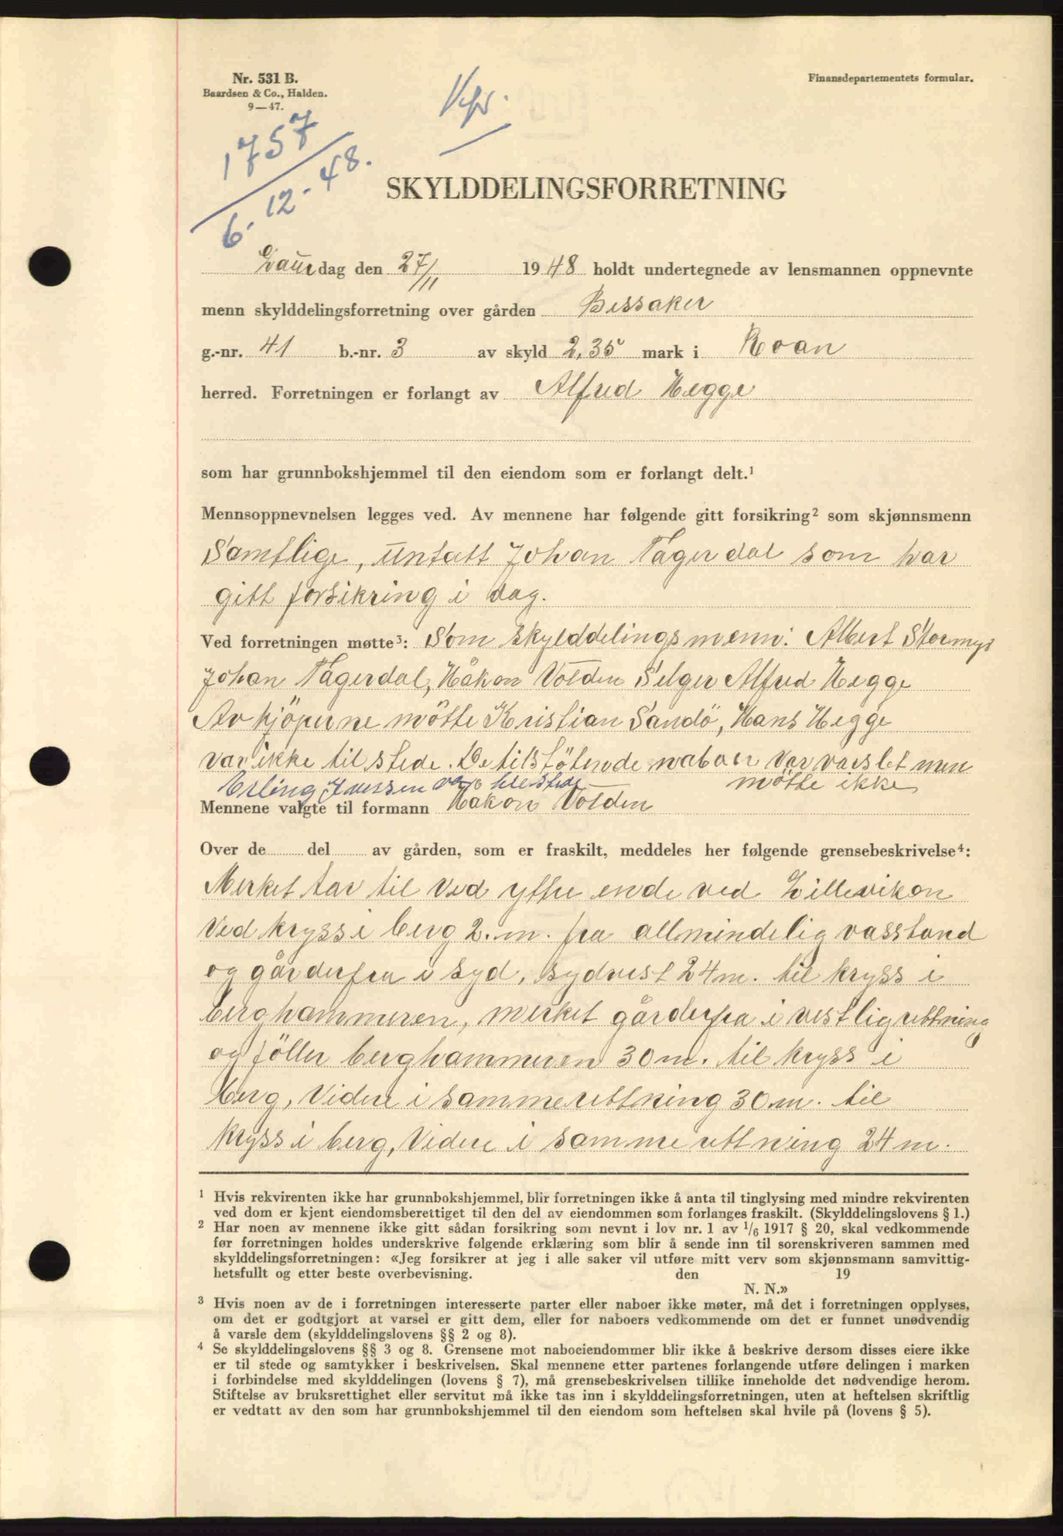 Nr. 531 B.
Baardsen & Co., Halden.
9—47.
Finansdepartementets formular.
1757
6.12-48.
SKYLDDELINGSFORRETNING
Laur dag den 27/11 1948 holdt undertegnede av lensmannen oppnevnte
menn skylddelingsforretning over gården Bessaker
g.-nr. 41 b.-nr. 3 av skyld 2,35 mark i Roan
herred. Forretningen er forlangt av Alfred Hegge
som har grunnbokshjemmel til den eiendom som er forlangt delt.¹
Mennsoppnevnelsen legges ved. Av mennene har følgende gitt forsikring² som skjønnsmenn
Samtlige, untatt Johan Fagerdal som har
gitt forsikring i dag.
Ved forretningen møtte³: Som skylddelingsmenn: Albert Stormyr
Johan Fagerdal, Håkon Volden Selger Alfred Hegge
Av kjöperne mötte Kristian Sandö, Hans Hegge
var ikke tilstede. De tilstötende naboer var varslet men
Erling Iversen var tilstede mötte ikke
Mennene valgte til formann Håkon Volden
Over de del av gården, som er fraskilt, meddeles her følgende grensebeskrivelse⁴:
Merket tar til ved yttre ende ved Lillevikon
ved kryss i berg 2.m. fra allmindelig vasstand
og går derfra i syd, sydvest 24 m. til kryss i
berghammeren, merket går derfra i vestlig rettning
og föller berghammeren 30 m. til kryss i
berg, Videre i samme rettning 30 m. til
kryss i berg, Videre i samme rettning 24 m.
¹ Hvis rekvirenten ikke har grunnbokshjemmel, blir forretningen ikke å anta til tinglysing med mindre rekvirenten
ved dom er kjent eiendomsberettiget til den del av eiendommen som forlanges fraskilt. (Skylddelingslovens § 1.)
² Har noen av mennene ikke gitt sådan forsikring som nevnt i lov nr. 1 av 1/6 1917 § 20, skal vedkommende
før forretningen holdes underskrive følgende erklæring som blir å sende inn til sorenskriveren sammen med
skylddelingsforretningen: «Jeg forsikrer at jeg i alle saker vil utføre mitt verv som skjønnsmann samvittig-
hetsfullt og etter beste overbevisning. den 19
N. N.»
³ Hvis noen av de i forretningen interesserte parter eller naboer ikke møter, må det i forretningen opplyses,
om det er godtgjort at varsel er gitt dem, eller for naboers vedkommende om det er funnet unødvendig
å varsle dem (skylddelingslovens §§ 2 og 8).
⁴ Se skylddelingslovens §§ 3 og 8. Grensene mot naboeiendommer blir ikke å beskrive dersom disses eiere ikke
er til stede og samtykker i beskrivelsen. Skal mennene etter partenes forlangende utføre delingen i marken
i forbindelse med skylddelingen (lovens § 7), må grensebeskrivelsen tillike inneholde det nødvendige herom.
Stiftelse av bruksrettighet eller servitut må ikke tas inn i skylddelingsforretningen, uten at heftelsen skriftlig
er vedtatt av den som har grunnbokshjemmel til den eiendom som heftelsen skal hvile på (lovens § 5).